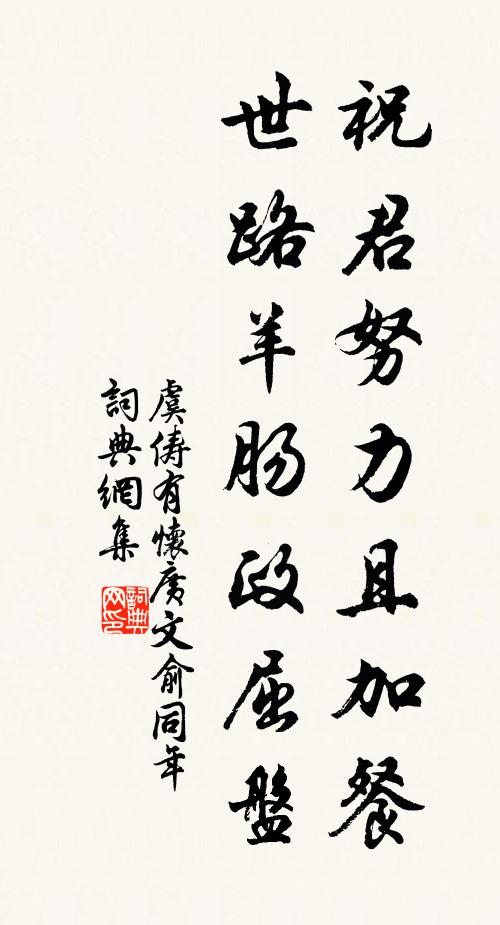 祝君努力且加餐
世路羊肠政屈盤
虞俦有懷廣文俞同年
詞典網集
詞典网印